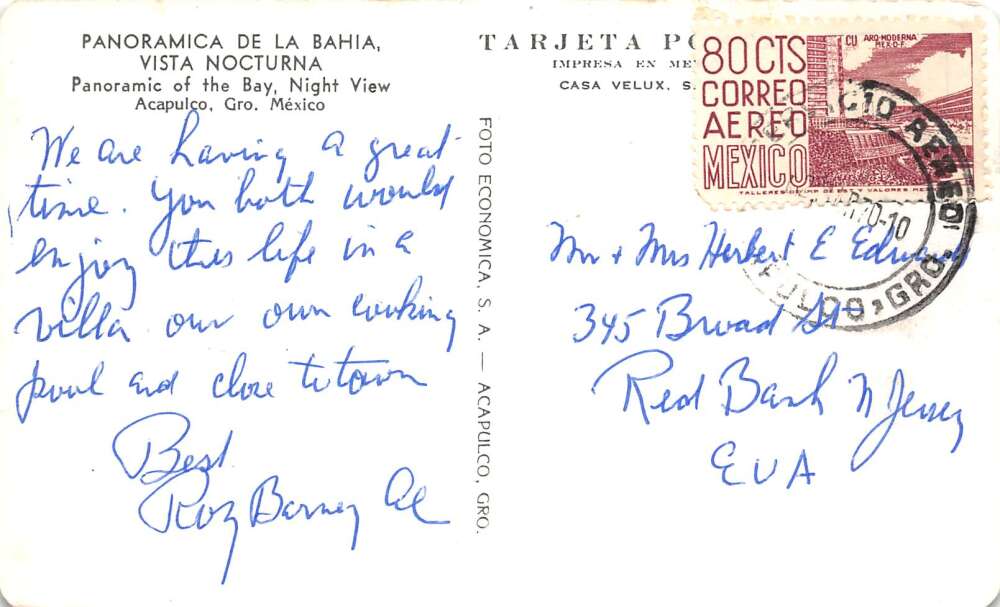 PANORAMICA DE LA BAHIA,
VISTA NOCTURNA
Panoramic of the Bay, Night View
Acapulco, Gro. México
We are having a great
time. You both would
enjoy this life in a
villa our own cooking
pool and close to town
Best
Roz Barney Al
FOTO ECONOMICA, S. A. — ACAPULCO, GRO.
TARJETA PO
IMPRESA EN ME
CASA VELUX, S.
80 CTS
CORREO
AEREO
MEXICO
CU ARQ-MODERNA
MEX D-F
TALLERES DE IMP DE EST Y VALORES MEX
AEREO
70-10
PULCO, GRO.
Mr + Mrs Herbert E Edwards
345 Broad St
Red Bank N Jersey
EUA